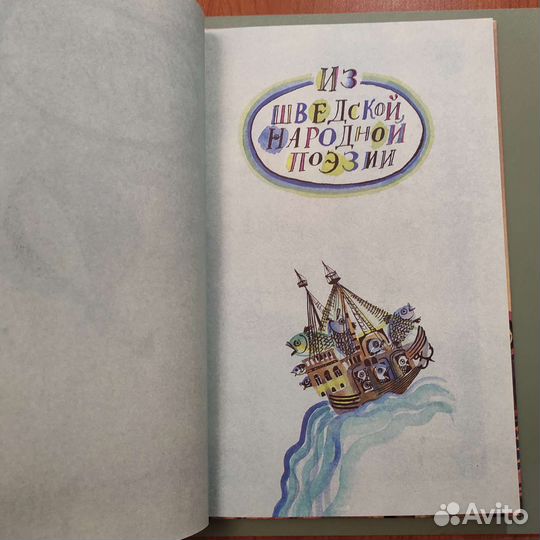 ИЗ
ШВЕДСКОЙ
НАРОДНОЙ
ПОЭЗИИ
Avito